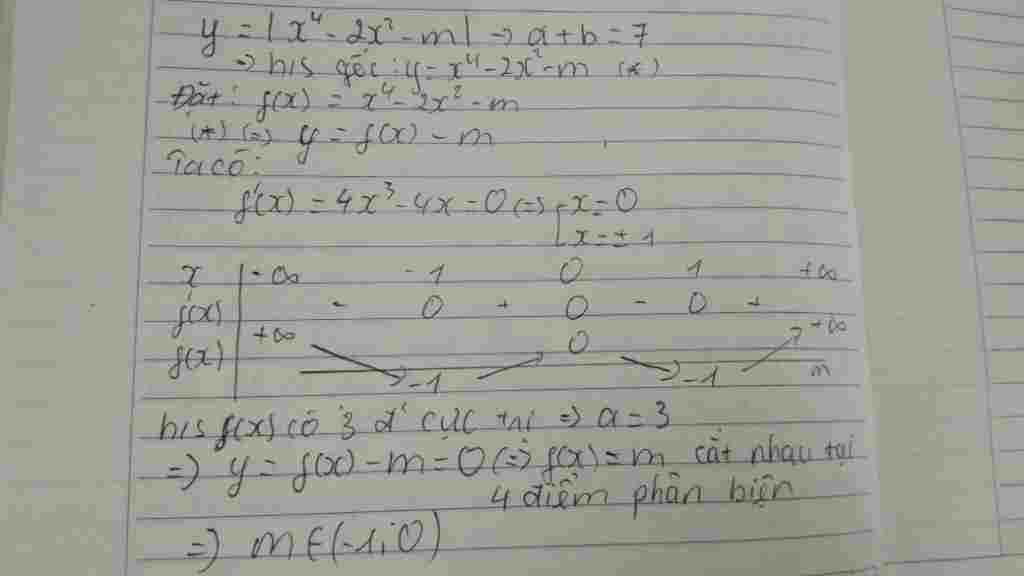 y = |x⁴ - 2x² - m| → a + b = 7
=> h/s gốc : y = x⁴ - 2x² - m (*)
Đặt : f(x) = x⁴ - 2x² - m
(*) (=) y = f(x) - m
Ta có :
f'(x) = 4x³ - 4x = 0 (=) [ x = 0
[ x = ± 1
x | -∞ -1 0 1 +∞
f'(x) | - 0 + 0 - 0 +
f(x) | +∞ -1 0 -1 +∞
m
h/s f(x) có 3 đ' cực trị => a = 3
=> y = f(x) - m = 0 (=) f(x) = m cắt nhau tại
4 điểm phân biện
=> m ∈ (-1; 0)